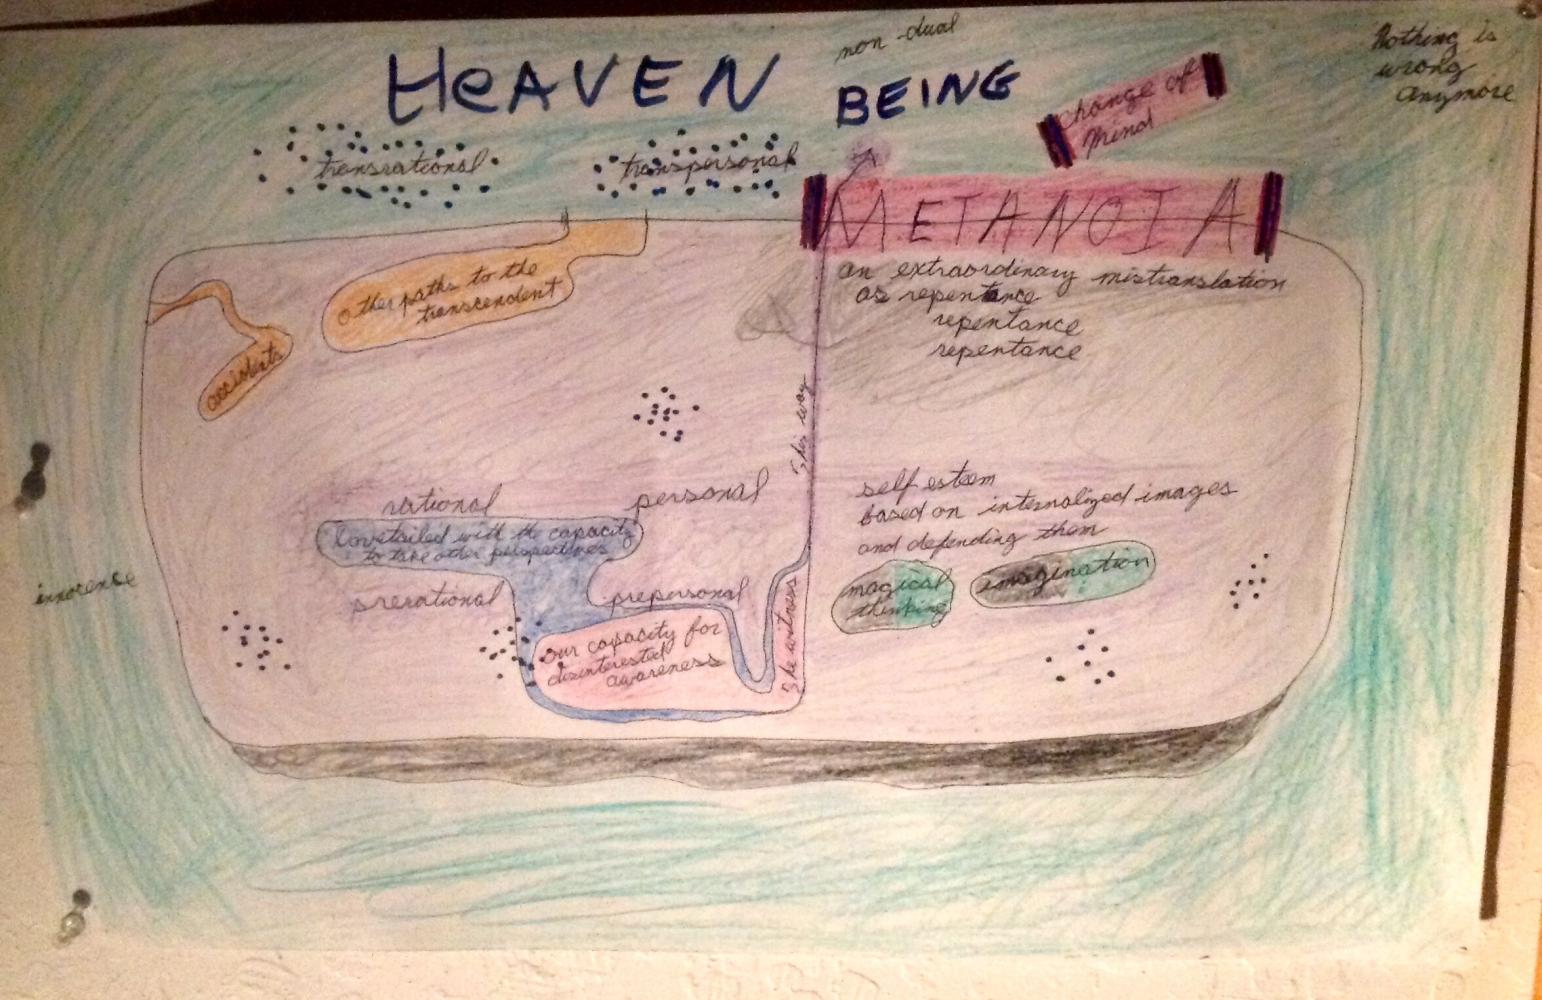 non-dual
HeAVEN
BEING
Nothing is
wrong
anymore
Change of
Mind
transrational
transpersonal
METANOIA
an extraordinary mistranslation
as repentance
repentance
repentance
Other paths to the
transcendent
accidents
This way
rational
personal
Dovetailed with the capacity
to take other perspectives
prerational
prepersonal
our capacity for
disinterested
awareness
The witness
self esteem
based on internalized images
and defending them
magical
thinking
imagination
innocence